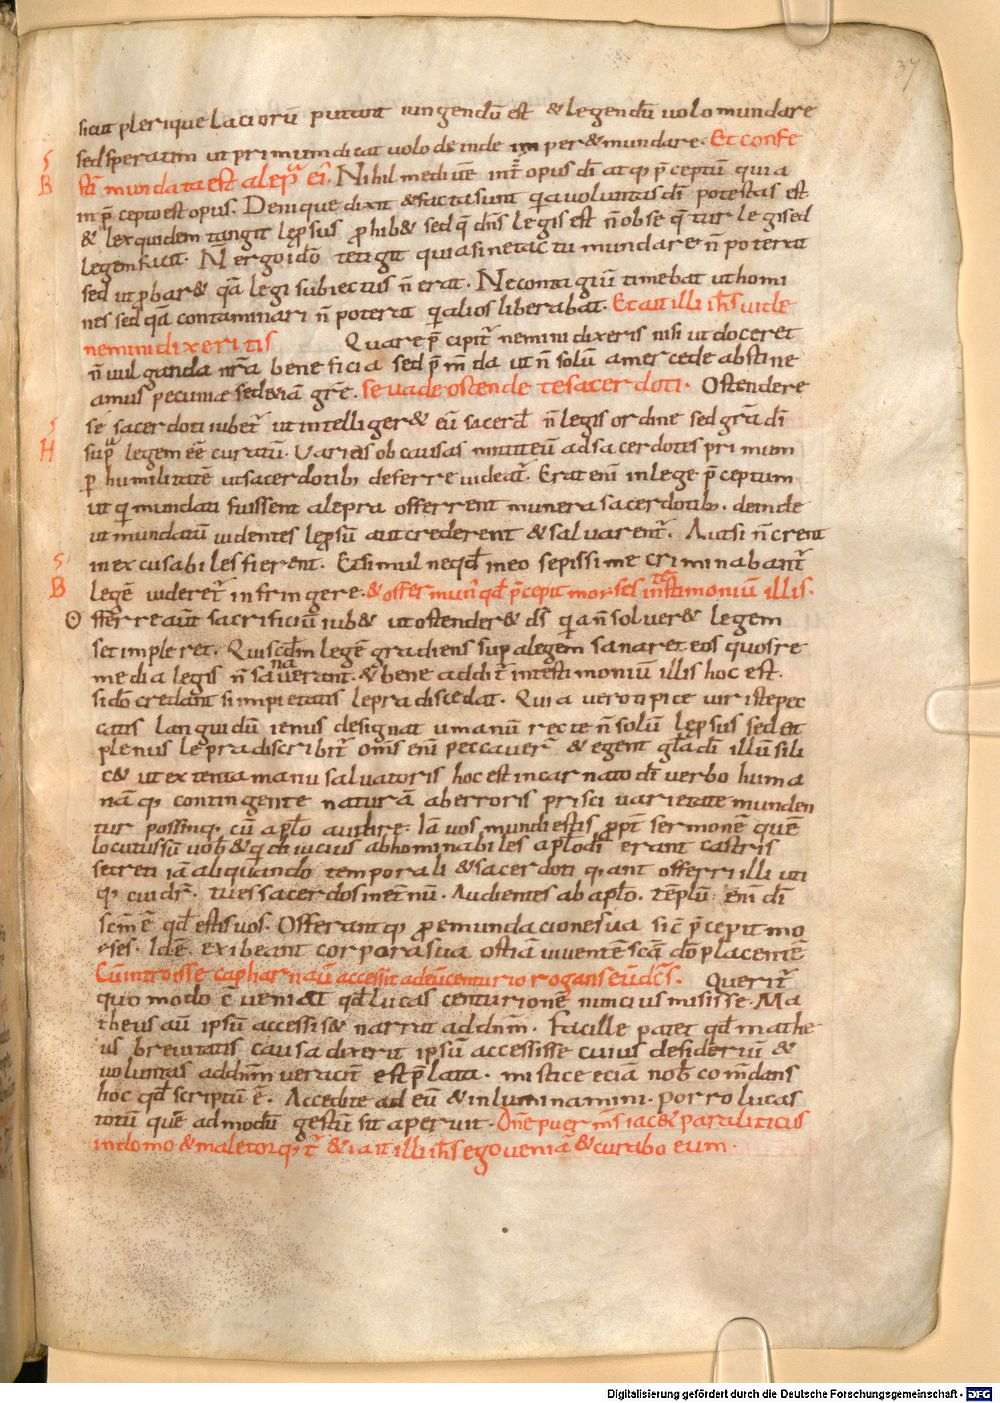 37
sicut plerique Laciorū putant iungendū est & legendū uolo mundare
sed speratim ut primum dicat uolo deinde imper& mundare. Et confe
S
B stī mundata est alepra ei. Nihil mediū ē int̄ opus dī atq; p̄ceptū quia
in p̄cepto est opus. Denique dixit & facta sunt quia uoluntas dī potestas est.
& lex quidem tangit lep̄sus p̄hib& sed q̄ dn̄s legis est n̄ obseq̄tur legi sed
legem facit. N ergo idō tetigit quia sine tactu mundare n̄ poterat
sed ut p̄bar& q̄a legi subiectus n̄ erat. Ne contagiū timebat ut homi
nes sed q̄a contaminari n̄ poterat qī alios liberabat. Et ait illi ih̄s uide
nemini dixeritis Quare p̄cipit̄ nemini dixeris nisi ut doceret
n̄ uulganda nr̄a beneficia sed p̄m̄da ut n̄ solū a mercede abstine
amus pecuniae sed &iā gr̄e. se uade ostende te sacerdoti. Ostendere
S se sacerdoti iubet̄ ut intelliger& eū sacerd̄ n̄ legis ordine sed gr̄a dī
H sup̄ legem eē curatū. Uarias ob causas mittit eū ad sacerdotes primum
p̱ humilitatē ut sacerdotib; deferre uideat̄. Erat enī in lege p̄ceptum
ut qī mundati fuissent alepra offerrent munera sacerdotib;. deinde
ut mundatū uidentes lep̄sū aut crederent & saluarent̄. Aut si n̄ crent
S inexcusabiles fierent. Et simul neqd̄ in eo sepissime criminabant̄
B legē uideret̄ infringere. & offer munꝰ qd̄ p̄cepit morses in testimoniū illis.
Offerre aūt sacrificiū iub& ut ostender& dī qī a n̄ soluer& legem
set impleret. Qui scd̄m legē gradiens sup̄ alegem sanaret eos quos re
media legis n̄ sanauerant. & bene addit̄ in testimoniū illis hoc est.
si dō credant si impietatis lepra discedat. Quia uero tipice uir iste pec
catis languidū ienus designat umanū recte n̄ solū lep̄sus sed et
plenus lepra discribit̄ om̄s enī peccauer̄ & egent gl̄a dī illū sili
c& ut extenta manu saluatoris hoc est incarnato dī uerbo huma
nāq; contingente naturā ab erroris prisci uarietate munden
tur possinq; cū ap̄lo audire. Iā uos mundi estis p̱pt̄ sermonē quē
locutus sū uob̄ & qī diucius abhominabiles ap̱lo dī erant castris
secreti iā aliquando temporali & sacerdoti q;ant offerri illi uti
q; cui dr̄. tu es sacerdos in et̄nū. Audientes ab ap̄lo. tēplū enī dī
scm̄ ē qd̄ estis uos. Offerantq; p̱ emundacione sua sic̄ p̄cepit mo
eses. Id ē exibeant corpora sua ostiā uiuentē scā dō placentē
Cū introisse capharnaū accessit ad eū centurio rogans eū dc̄s. Querit̄
quomodo cūeniat qd̄ lucas centurionē nuncius misisse. Ma
theus aū ipsū accessis& narrat ad dn̄m. Facille patet qd̄ mathe
us breuitatis causa dixerit ipsū accessisse cuius desideriū &
uoluntas ad dn̄m ueracit̄ est p̄lata. mistice eciā nob̄ com̄dans
hoc qd̄ scriptū ē. Accedite ad eū & inluminamini. porro lucas
totū quē admodū gestū sit aperuit. Dn̄e puer m̄s iac& paraliticus
in domo & male torq;t̄ & iait illi ih̄s ego ueniā & curabo eum.
Digitalisierung gefördert durch die Deutsche Forschungsgemeinschaft - DFG